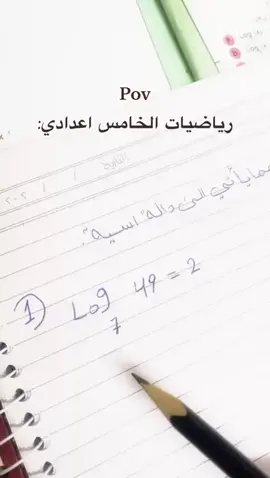 Pov
رياضيات الخامس اعدادي:
التاريخ / / ٢٠٢
مما يأتي الى دالة اسية".
1) Log₇ 49 = 2